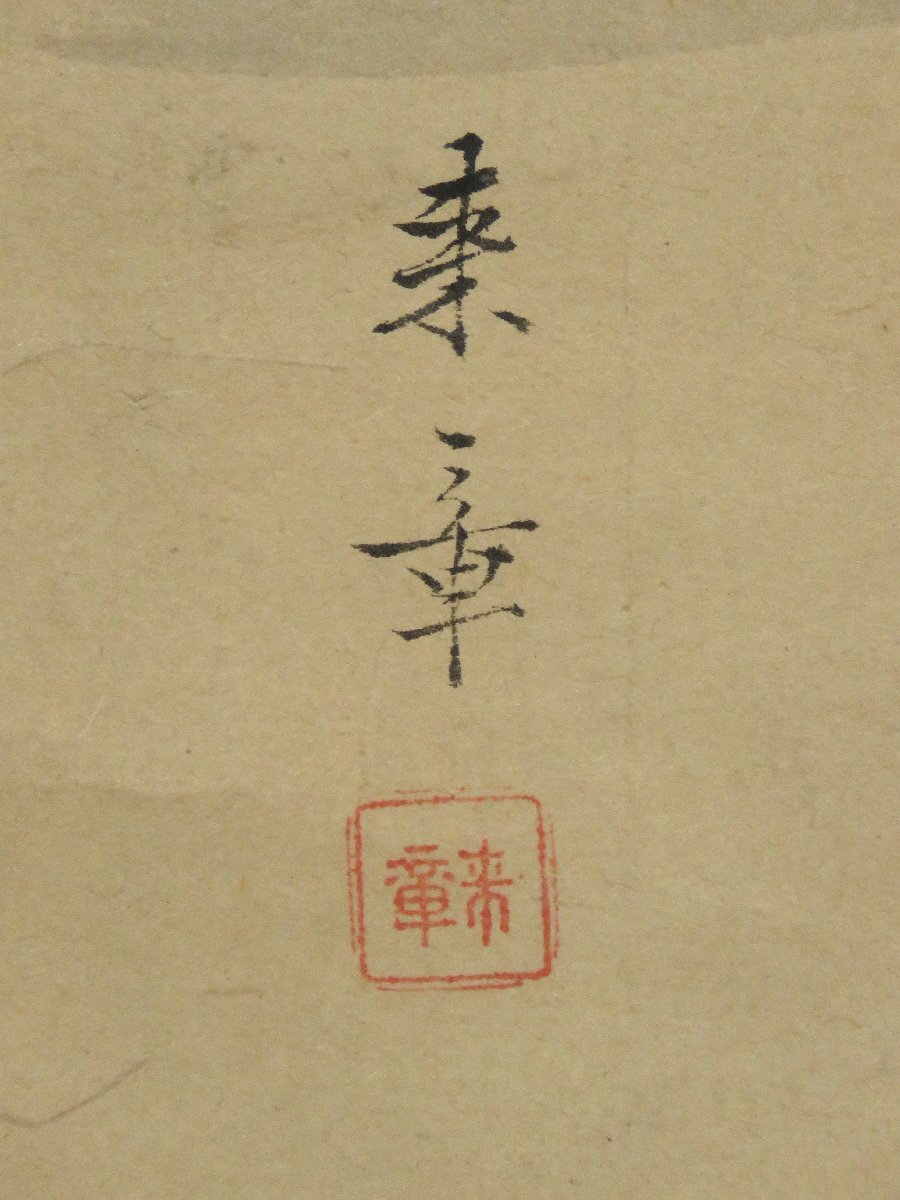 来章
来章